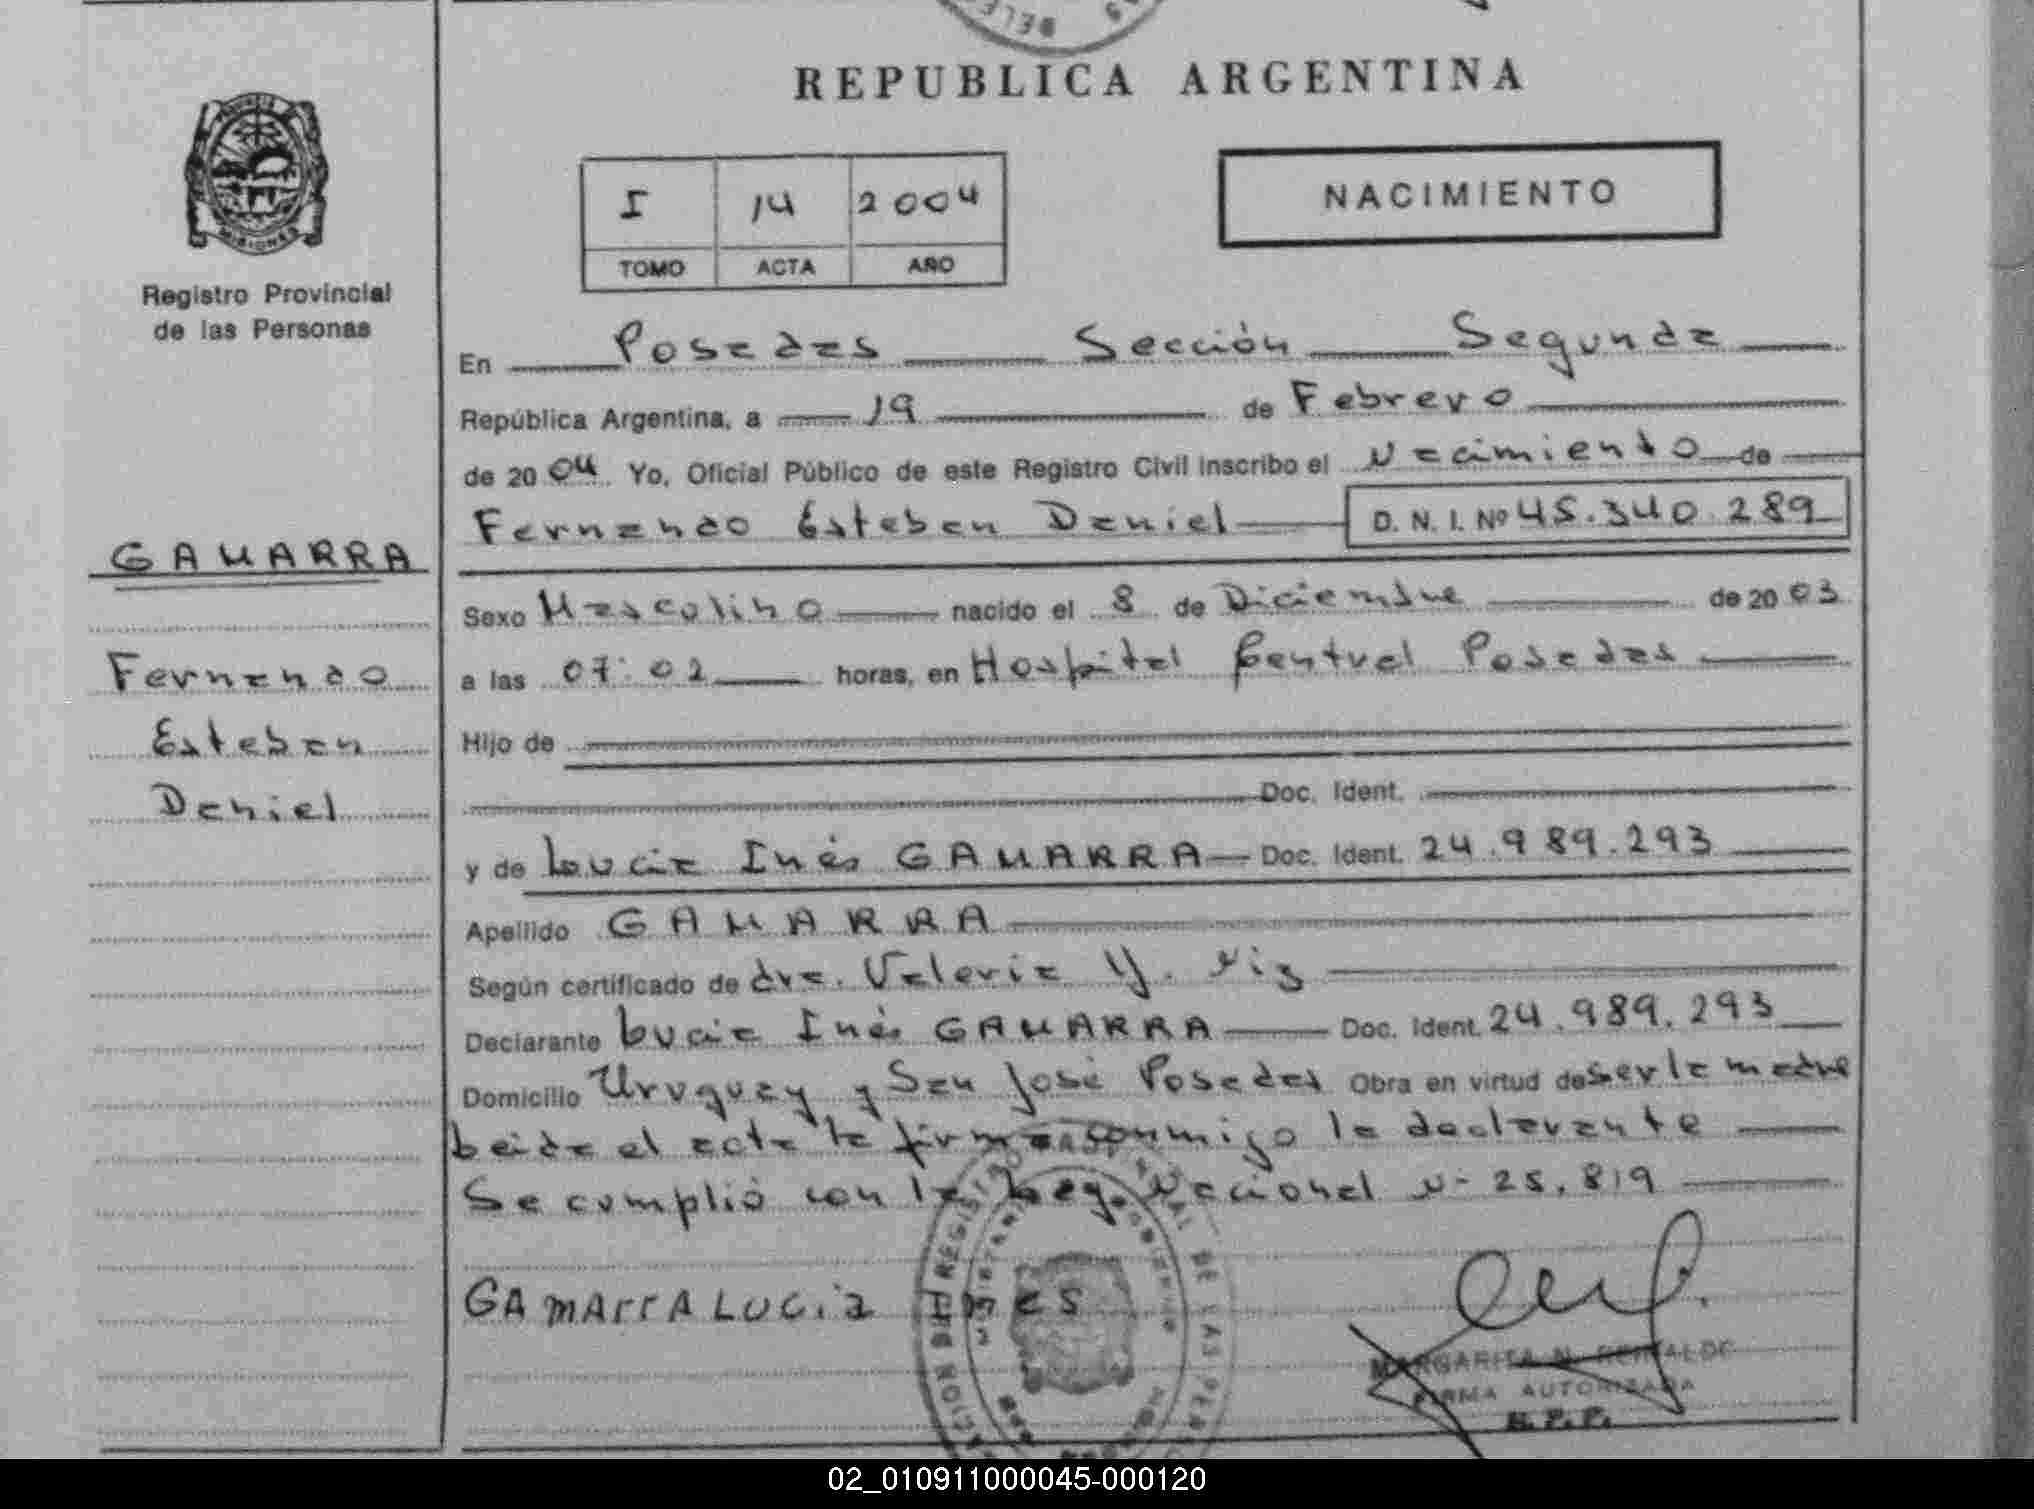 REPUBLICA ARGENTINA
I 14 2004
TOMO ACTA AÑO
NACIMIENTO
MISIONES
Registro Provincial
de las Personas
GAMARRA
Fernando
Esteban
Daniel
En Posadas Sección Segunda
República Argentina, a 19 de Febrero
de 2004 Yo, Oficial Público de este Registro Civil inscribo el Nacimiento de
Fernando Esteban Daniel D. N. I. Nº 45.340.289
Sexo Masculino nacido el 8 de Diciembre de 2003
a las 07:02 horas, en Hospital Central Posadas
Hijo de
Doc. Ident.
y de Lucia Inés GAMARRA Doc. Ident. 24.989.293
Apellido GAMARRA
Según certificado de dra. Valeria Y.
Declarante Lucia Inés GAMARRA Doc. Ident. 24.989.293
Domicilio Uruguay y San José Posadas Obra en virtud de ser la madre
Leida el acta la firma conmigo la declarante
Se cumplió con la Ley Nacional N- 25.819
GAMArrA LUCia INES
MARGARITA N.
FIRMA AUTORIZADA
R.P.P.
02_010911000045-000120